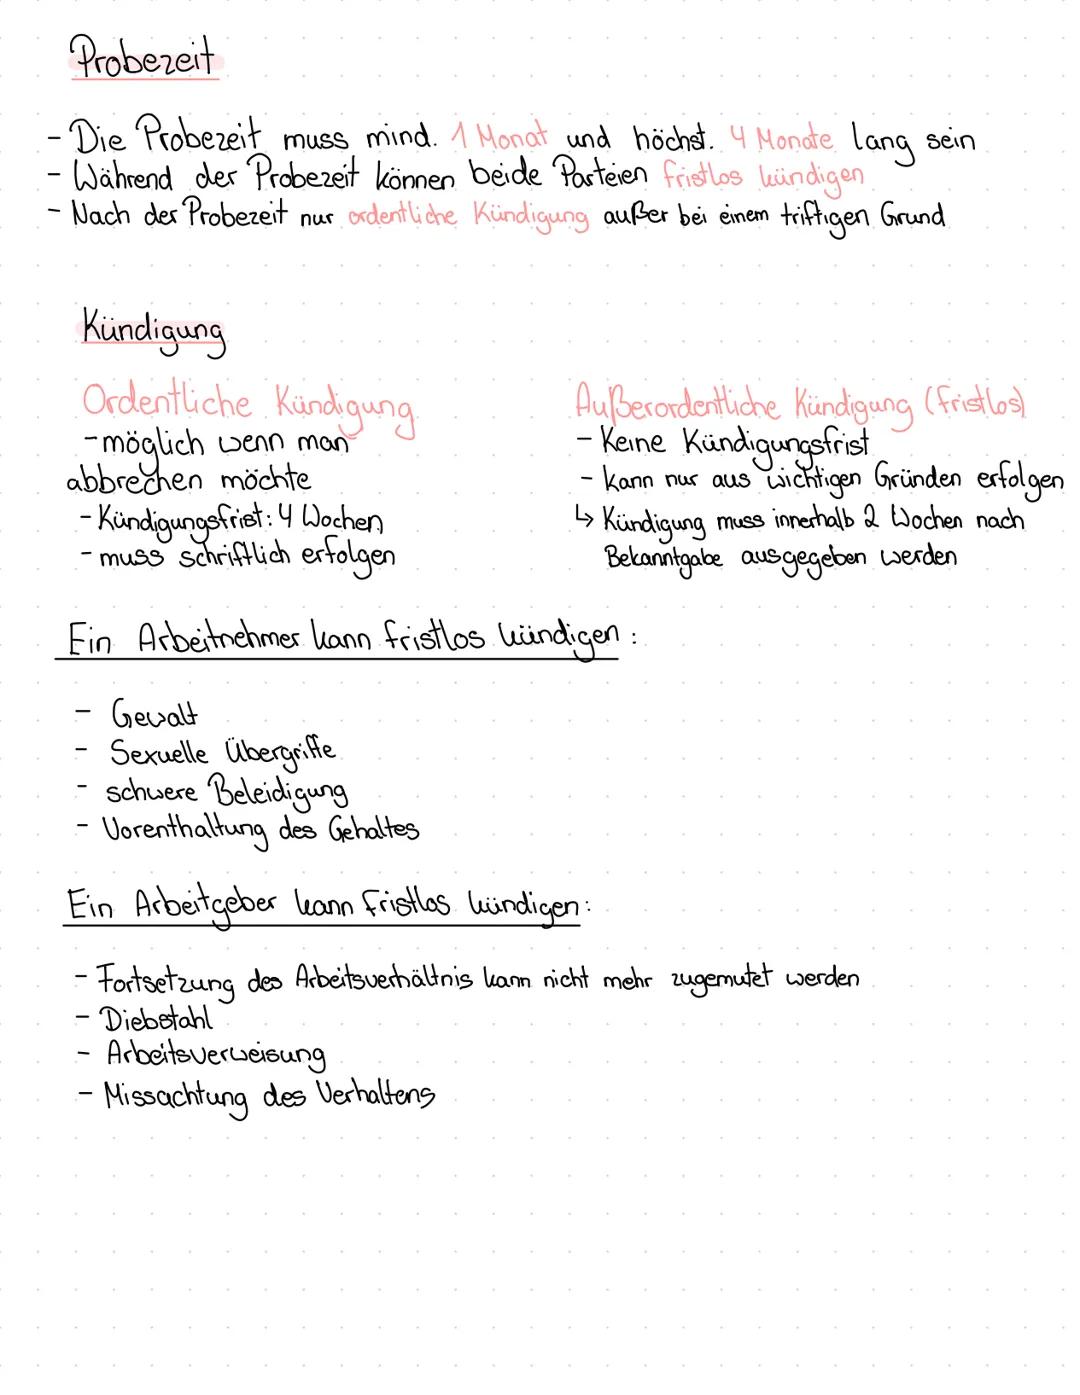 Probezeit
- Die Probezeit muss mind. 1 Monat und höchst. 4 Monate lang sein
- Während der Probezeit können beide Parteien fristlos kündigen
- Nach der Probezeit nur ordentliche Kündigung außer bei einem triftigen Grund
Kündigung
Ordentliche Kündigung
- möglich wenn man
abbrechen möchte
- Kündigungsfrist: 4 Wochen
- muss schriftlich erfolgen
Außerordentliche Kündigung (fristlos)
- Keine Kündigungsfrist
- kann nur aus wichtigen Gründen erfolgen
↳ Kündigung muss innerhalb 2 Wochen nach
Bekanntgabe ausgegeben werden
Ein Arbeitnehmer kann fristlos kündigen:
- Gewalt
- Sexuelle Übergriffe
- schwere Beleidigung
- Vorenthaltung des Gehaltes
Ein Arbeitgeber kann fristlos kündigen:
- Fortsetzung des Arbeitsverhältnis kann nicht mehr zugemutet werden
- Diebstahl
- Arbeitsverweisung
- Missachtung des Verhaltens